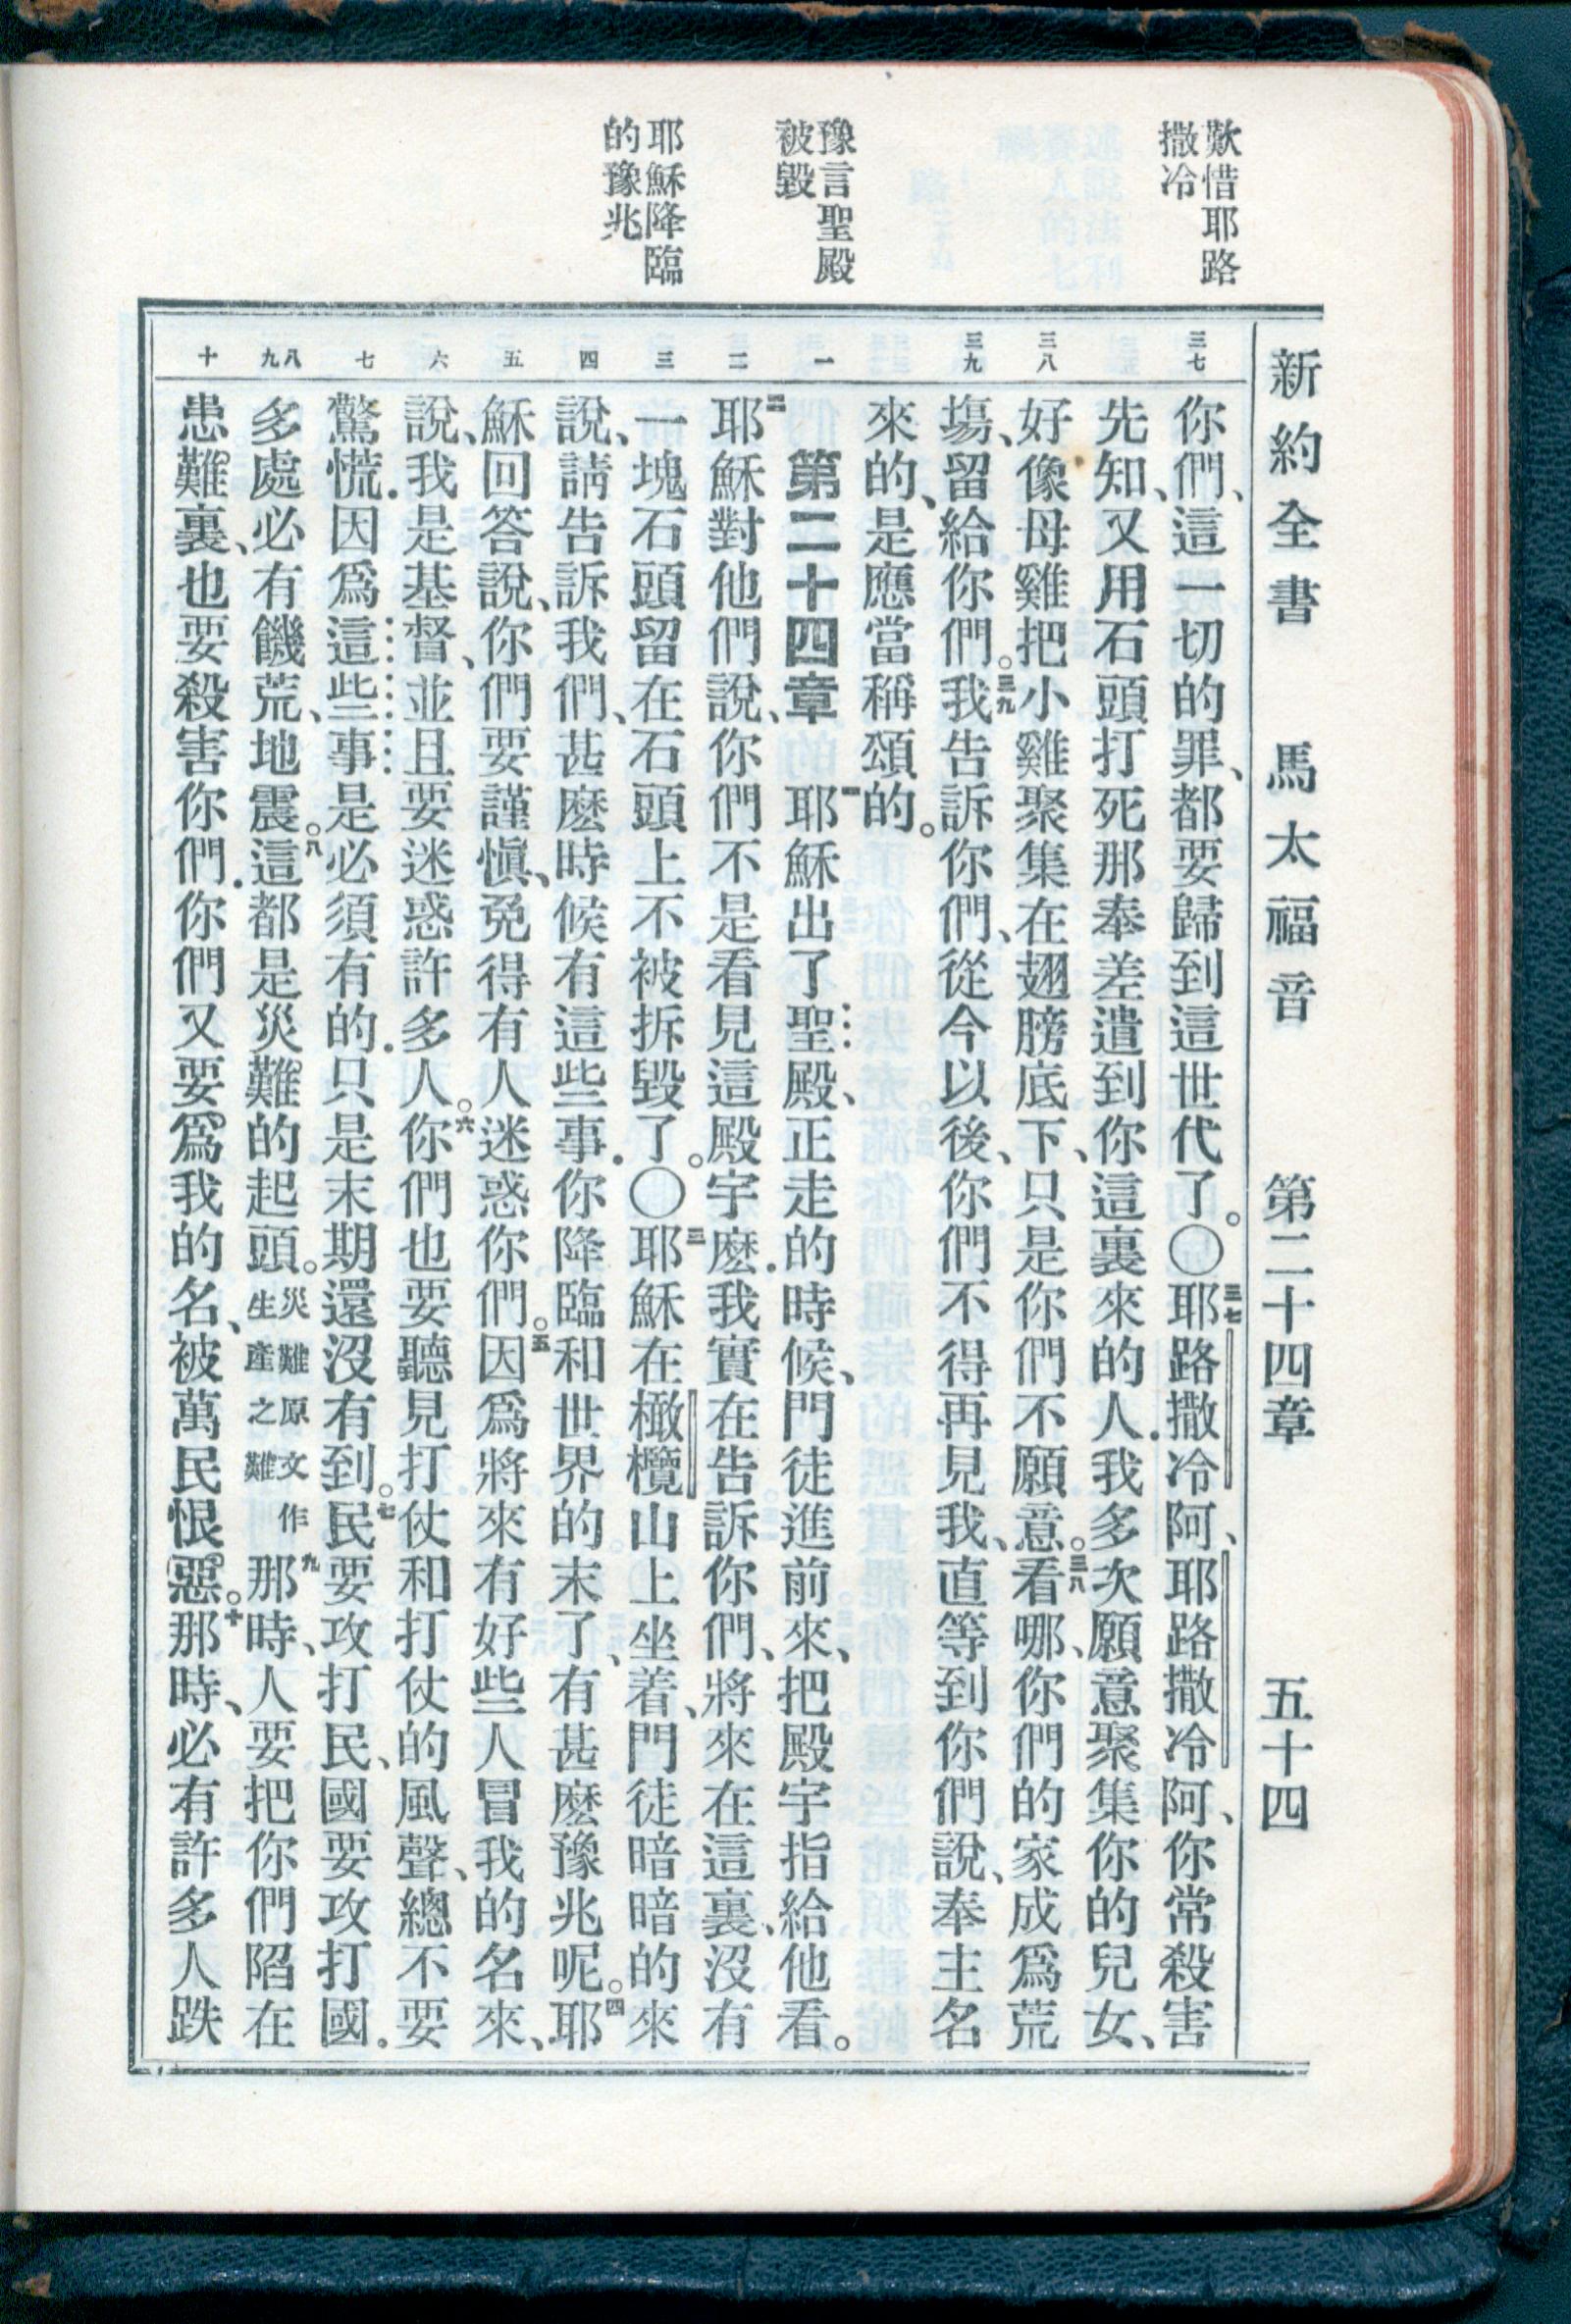 新約全書　馬太福音　第二十四章　五十四
歎惜耶路
撒冷
豫言聖殿
被毀
耶穌降臨
的豫兆
三七
三八
三九
一
二
三
四
五
六
七
八
九
十
你們、這一切的罪、都要歸到這世代了。〇三七耶路撒冷阿、耶路撒冷阿、你常殺害
先知、又用石頭打死那奉差遣到你這裏來的人．我多次願意聚集你的兒女、
好像母雞把小雞聚集在翅膀底下、只是你們不願意。三八看哪、你們的家成爲荒
塲、留給你們。三九我告訴你們、從今以後、你們不得再見我、直等到你們說、奉主名
來的、是應當稱頌的。
第二十四章　一耶穌出了聖殿、正走的時候、門徒進前來、把殿宇指給他看。
二耶穌對他們說、你們不是看見這殿宇麽．我實在告訴你們、將來在這裏、沒有
一塊石頭留在石頭上不被拆毀了。〇三耶穌在橄欖山上坐着、門徒暗暗的來
說、請告訴我們、甚麽時候有這些事．你降臨和世界的末了、有甚麽豫兆呢。四耶
穌回答說、你們要謹愼、免得有人迷惑你們。五因爲將來有好些人冒我的名來、
說、我是基督、並且要迷惑許多人。六你們也要聽見打仗和打仗的風聲、總不要
驚慌．因爲這些事是必須有的．只是末期還沒有到。七民要攻打民、國要攻打國．
多處必有饑荒、地震。八這都是災難的起頭。災難原文作生產之難九那時、人要把你們陷在
患難裏、也要殺害你們．你們又要爲我的名、被萬民恨惡。十那時、必有許多人跌